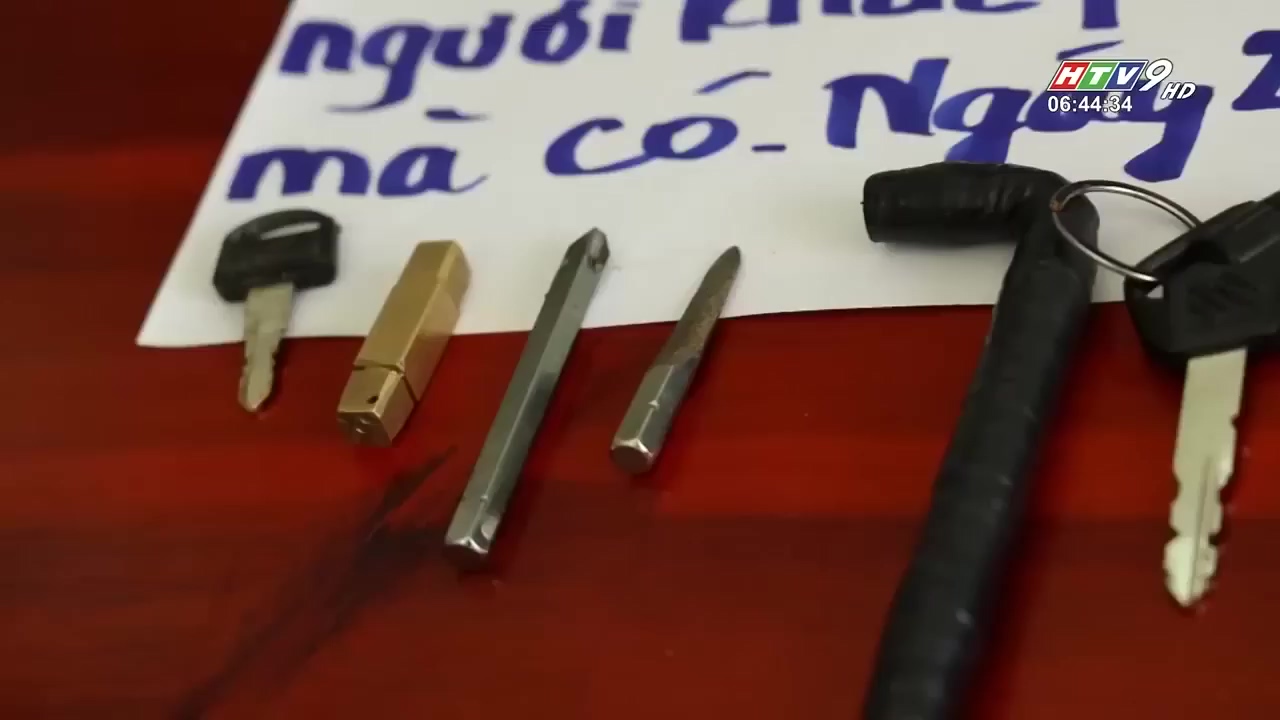 người khác
mà có - Ngày 2
HTV9 HD
06:44:34